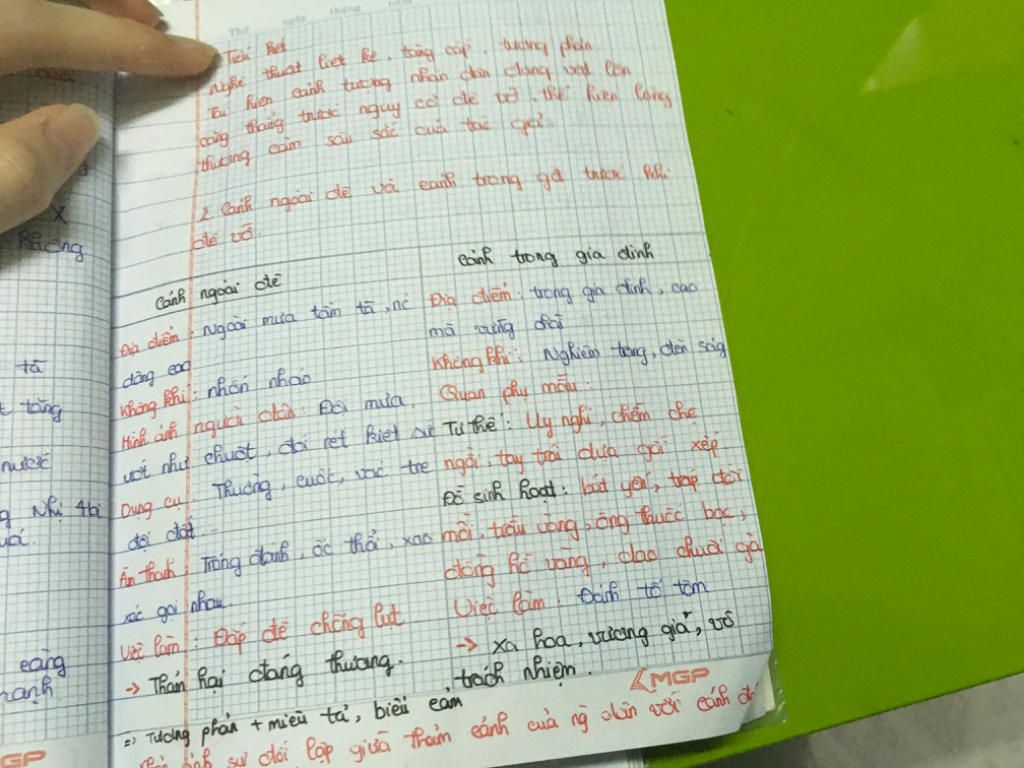 Thứ ngày tháng năm
Tiểu kết
Nghệ thuật liệt kê, tăng cấp, tương phản
Tái hiện cảnh tượng nhân dân đang vật lộn
căng thẳng trước nguy cơ đê vỡ, thể hiện lòng
thương cảm sâu sắc của tác giả.
2. Cảnh ngoài đê và cảnh trong gđ trước khi
đê vỡ.
Cảnh ngoài đê
Địa điểm: Ngoài mưa tầm tã, nc
dâng cao
Không khí: nhốn nháo
Hình ảnh người dân: Đội mưa,
ướt như chuột, đói rét kiệt sức
Dụng cụ: Thuổng, cuốc, vác tre
đội đất
Âm thanh: Trống đánh, ốc thổi, xao
xác gọi nhau
Việc làm: Đắp đê chống lụt
-> Thảm hại đáng thương.
cảnh trong gia đình
Địa điểm: trong gia đình, cao
mà vững chãi
Không khí: Nghiêm trang, đèn sáng
Quan phụ mẫu:
Tư thế: Uy nghi, chễm chệ
ngồi, tay trái dựa gối xếp
Đồ sinh hoạt: bát yến, tráp đồi
mồi, trầu vàng, ống thuốc bạc,
đồng hồ vàng, dao chuôi ngà
Việc làm: Đánh tổ tôm
-> xa hoa, vương giả, vô
trách nhiệm.
=> Tương phản + miêu tả, biểu cảm
sự đối lập giữa thảm cảnh của ng dân với cảnh
MGP
X
không
tã
tăng
nước
Nhị
càng
MGP